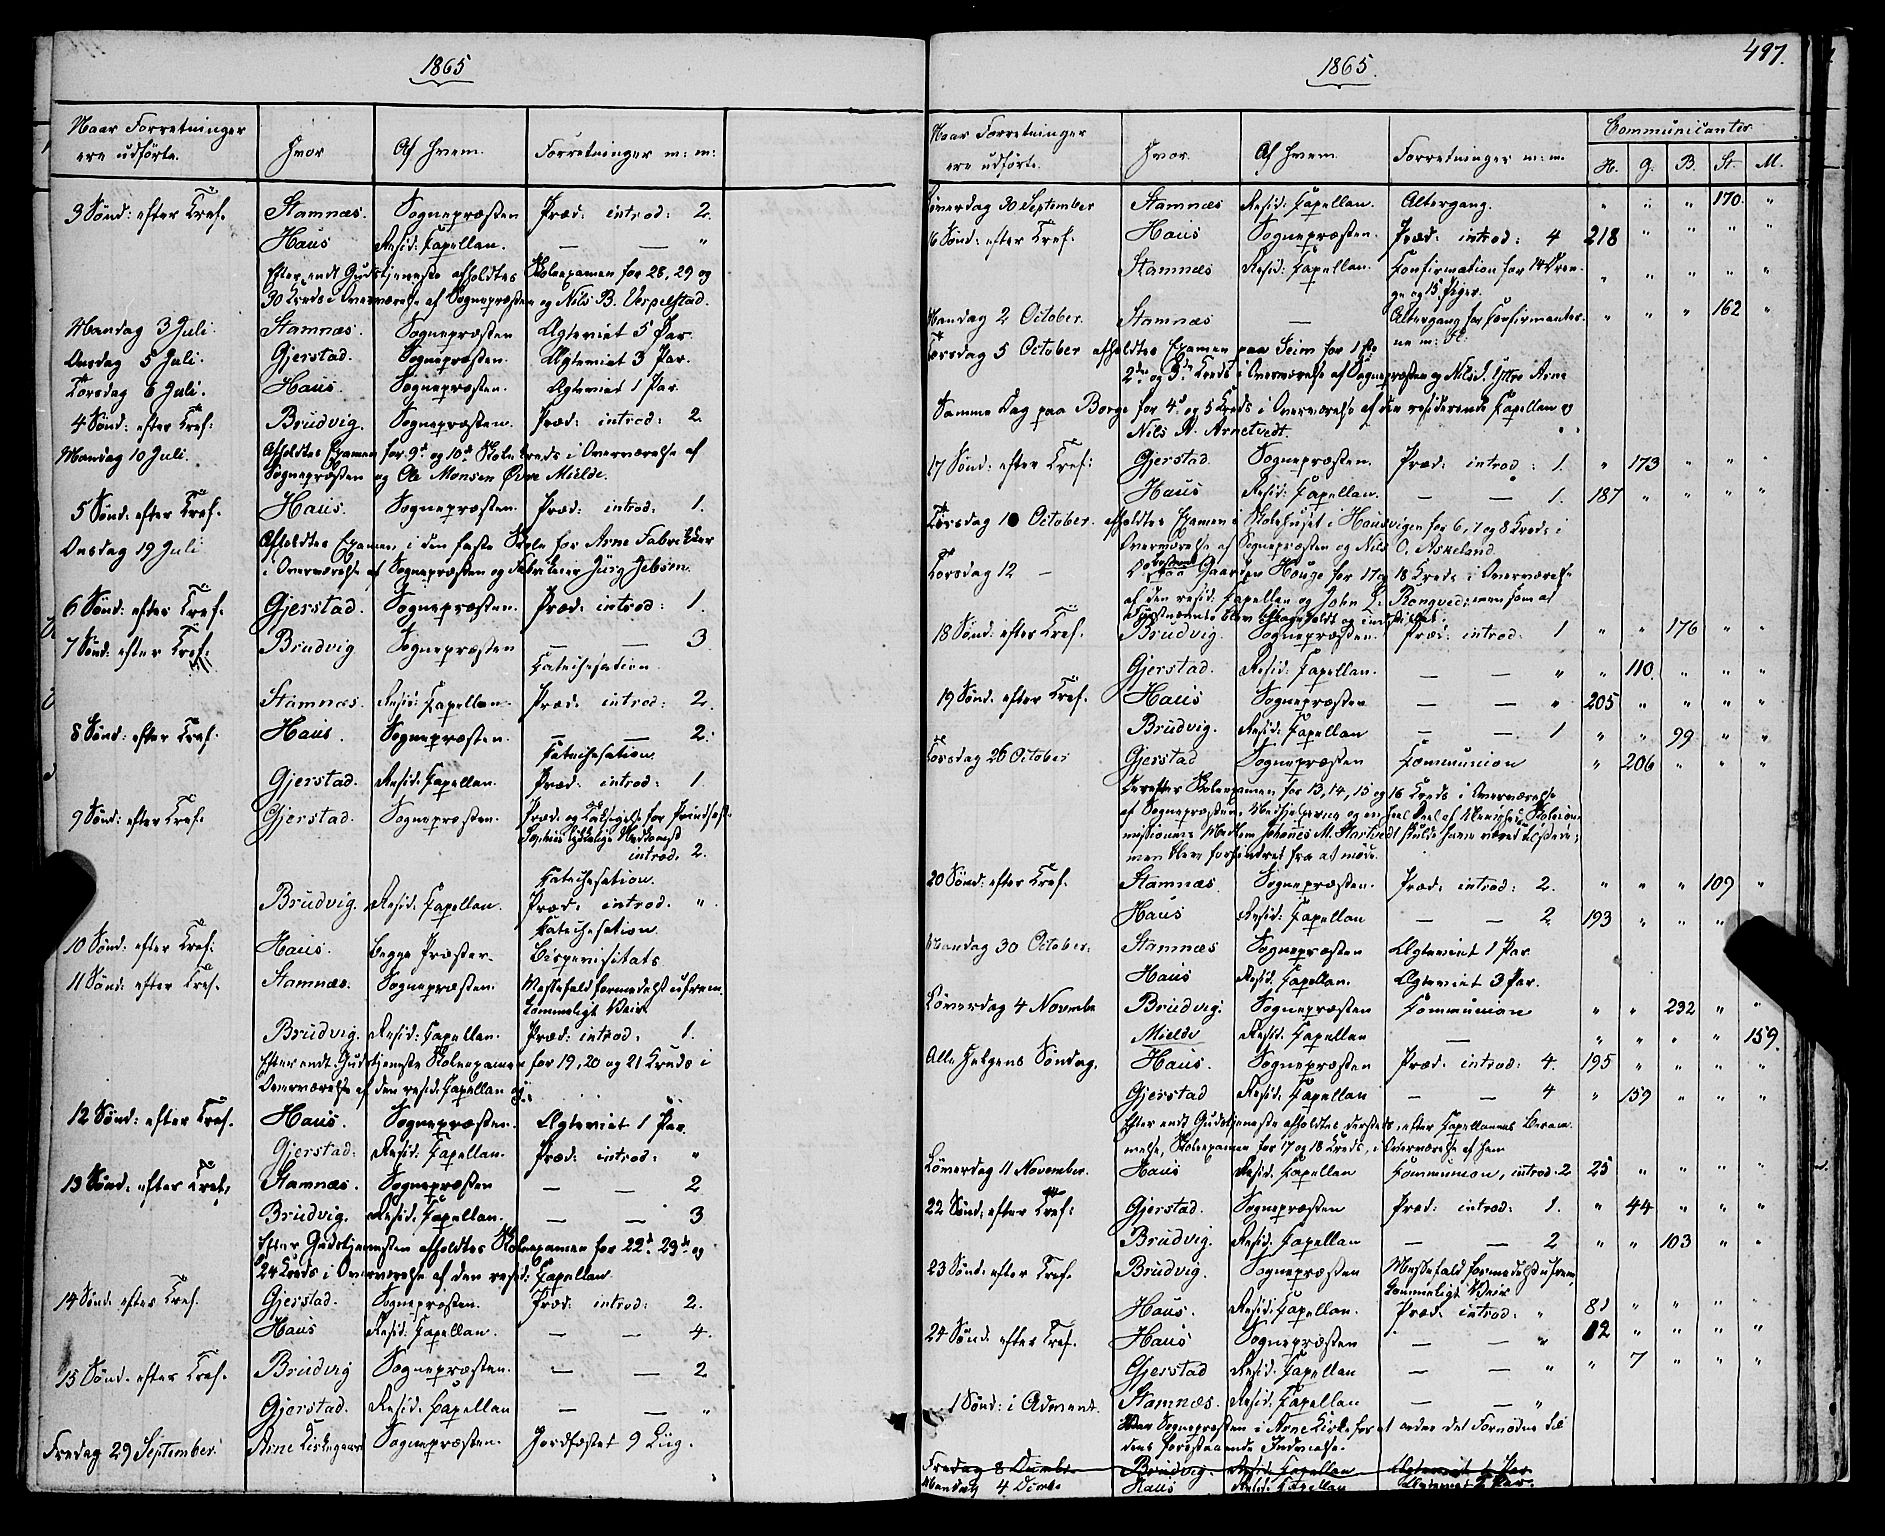 1865
Naar Forretninger
ere udførte.
Hvor
Af Hvem.
Forretninger m: m:
3 Sønd: efter Tref. Stamnæs. Sognepræsten Præd: introd: 2.
Haus Resid: Capellan. — — "
Efter endt Gudstjeneste afholdtes Skoleexamen for 28, 29 og
30 Kreds i Overværelse af Sognepræsten og Nils B. Vespelstad.
Mandag 3 Juli. Stamnæs. Sognepræsten Ægteviet 5 Par.
Onsdag 5 Juli. Gjerstad. Sognepræsten. Ægteviet 3 Par.
Torsdag 6 Juli. Haus. Sognepræsten. Ægteviet 1 Par
4 Sønd: efter Tref: Brudvig. Sognepræsten. Præd: introd: 2.
Mandag 10 Juli. Afholdtes Examen for 9de og 10de Skolekreds i Overværelse af
Sognepræsten og Ole Monsen Øvre Mielde.
5 Sønd: efter Tref. Haus. Sognepræsten. Præd: introd: 1.
Onsdag 19 Juli Afholdtes Examen i den faste Skole for Arne Fabrikker
i Overværelse af Sognepræsten og Fabrikeier Jürg Jebsen.
6 Sønd: efter Tref. Gjerstad. Sognepræsten. Præd: introd: 1.
7 Sønd: efter Tref. Brudvig Sognepræsten — — 3
Catechesation.
Stamnæs. Resid: Capellan. Præd: introd: 2.
8 Sønd: efter Tref. Haus. Sognepræsten. — — 2.
Catechesation
Gjerstad. Resid: Capellan. Præd: introd: 1.
9 Sønd: efter Tref. Gjerstad. Sognepræsten. Præd: og Taksigelse for Prindsesse
Sophies lykkelige Nedkomst
introd. 2.
Catechesation.
Brudvig. Resid: Capellan. Præd: introd. "
Catechesation.
10 Sønd: efter Tref: Haus. Begge Præster. Bispevisitats
11 Sønd: efter Tref. Stamnæs. Sognepræsten. Messefald formedelst ufrem-
kommeligt Veir.
Brudvig. Resid: Capellan. Præd: introd. 1.
Efter endt Gudstjeneste Skoleexamen for 19, 20 og 21 Kreds i
Overværelse af den resid: Capellan og:
12 Sønd: efter Tref. Haus. Sognepræsten. Ægteviet 1 Par.
Gjerstad: Resid: Capellan. Præd: introd: "
13 Sønd: efter Tref. Stamnæs. Sognepræsten — — 2
Brudvig. Resid: Capellan. — — 3
Efter Gudstjenesten afholdtes Skoleexamen for 22de 23de og
24 Kreds i Overværelse af den resid: Capellan
14 Sønd: efter Tref. Gjerstad. Sognepræsten. Præd: introd: 2.
Haus Resid: Capellan. — — 4.
15 Sønd: efter Tref. Brudvig Sognepræsten. — — 2
Gjerstad. Resid: Capellan — — "
Fredag 29 September. Arne Kirkegaard Sognepræsten. Jordfæstet 9 Liig.
497.
1865.
Naar Forretninger
ere udførte.
Hvor.
Af Hvem.
Forretninger m: m.
Communicanter
H. G. B. St. M.
Løverdag 30 September Stamnæs Resid: Capellan. Altergang. " " " 170. "
16 Sønd: efter Tref. Haus Sognepræsten. Præd: introd: 4 218 " " " "
Stamnæs Resid: Capellan. Confirmation for 14 Dren- " " " " "
ge og 15 Piger.
Mandag 2 October. Stamnæs — Altergang for Confirmanter- " " " 162 "
ne m: Fl.
Torsdag 5 October afholdtes Examen paa Seim for 1ste
2den og 3de Kreds i Overværelse af Sognepræsten og Nils J. Yttre Arne
Samme Dag paa Borge for 4de og 5 Kreds i Overværelse af den residerende Capellan og
Nils A. Arnetvedt.
17 Sønd: efter Tref: Gjerstad. Sognepræsten. Præd: introd: 1. " 173 " " "
Haus Resid: Capellan. — — 1. 187 " " " "
Torsdag 10 October. afholdtes Examen i Skolehuset i Haukvigen for 6, 7 og 8 Kreds i
Overværelse af Sognepræsten og Nils O. Askeland.
Torsdag 12 — paa Gaarden Houge for 17 og 18 Kreds i Overværelse
af den resid: Capellan og John L. Rongved; men som af
18 Sønd: efter Tref. Brudvig. Sognepræsten. Præd: introd: 1 " " 176 " "
Gjerstad. Resid: Capellan. — — " " 110. " " "
19 Sønd: efter Tref. Haus Sognepræsten — — " 205 " " " "
Brudvig. Resid: Capellan — — 1 " " 99 " "
Torsdag 26 October Gjerstad Sognepræsten Communion " 206 " " "
Derefter Skoleexamen for 13, 14, 15 og 16 Kreds i Overværelse
af Sognepræsten, Medhjælperne og en heel Deel af Almuen; Skolecom-
missionens Medlem Johannes M. Hartvedt skulde have været tilstede;
men blev forhindret fra at møde.
20 Sønd: efter Tref. Stamnæs. Sognepræsten. Præd: introd: 2. " " " 109 "
Haus Resid: Capellan — — 2 193 " " "
Mandag 30 October. Stamnæs Sognepræsten Ægteviet 1 Par
Haus Resid. Capellan. Ægteviet 3 Par.
Løverdag 4 Novembe Brudvig. Sognepræsten Communion " " 232 " "
Mielde Resid: Capellan — " " " " 159.
Alle Helgens Søndag. Haus. Sognepræsten Præd: introd: 4. 195 " " " "
Gjerstad Resid. Capellan — — 4 " 159 " " "
Efter endt Gudstjeneste afholdtes dersteds, efter Capellanens Beram-
melse, Skoleexamen for 17 og 18 Kreds, i Overværelse af ham
Løverdag 11 November. Haus Resid: Capellan Communion, introd: 2 25 " " " "
22 Sønd: efter Tref: Gjerstad. Sognepræsten Præd: introd: 1. " 44 " " "
Brudvig. Resid: Capellan — — 2 " " 103 " "
23 Sønd: efter Tref. Brudvig. Sognepræsten Messefald formedelst ufrem-
kommeligt Veir
Haus. Resid: Capellan. Præd: introd: " 81 " " " "
24 Sønd: efter Tref. Haus Sognepræsten — — " 12 " " " "
Gjerstad Resid: Capellan — — " " 7 " " "
1 Sønd: i Advent. Stamnæs. Resid. Capellan — — "
Var Sognepræsten i Arne Kirke for at ordne det Fornødne til
dens forestaaende Indvielse.
Fredag 8 Decembr. Brudvig. Resid. Capellan Ægteviet 1 Par
Mandag 4 Decbr Haus Resid. Capellan Ægteviet 2 Par.